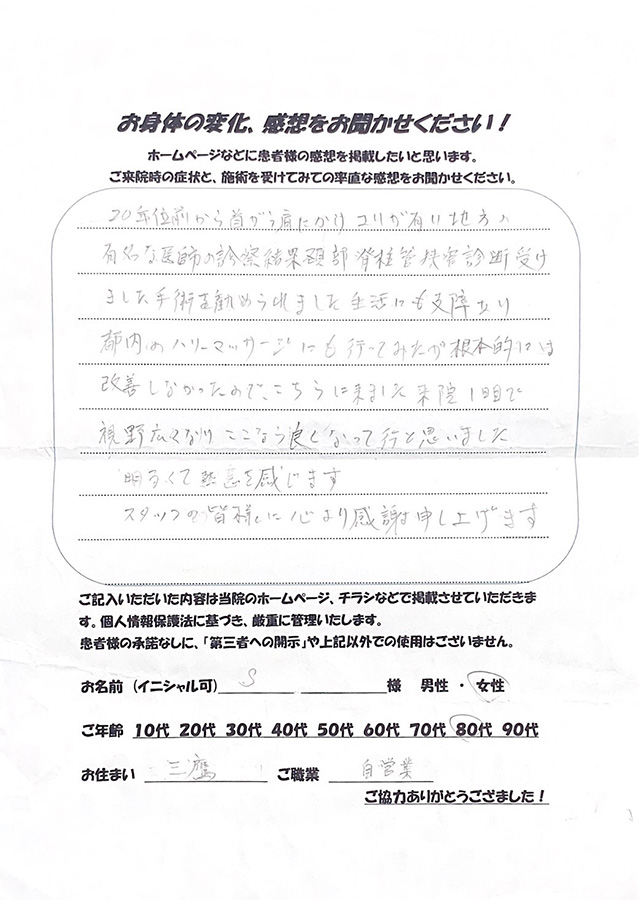 お身体の変化、感想をお聞かせください！
ホームページなどに患者様の感想を掲載したいと思います。
ご来院時の症状と、施術を受けてみての率直な感想をお聞かせください。
20年位前から首から肩にかけコリが有り地方の
有名な医師の診察結果頚部脊柱管狭窄診断受け
ました手術を勧められました生活にも支障立り
都内のハリーマッサージにも行ってみたが根本的には
改善しなかったので、こちらに来ました来院1日目で
視野広くなり ここなら良くなって行と思いました
明るくて熱意を感じます
スタッフの皆様に心より感謝申し上げます
ご記入いただいた内容は当院のホームページ、チラシなどで掲載させていただきま
す。個人情報保護法に基づき、厳重に管理いたします。
患者様の承諾なしに、「第三者への開示」や上記以外での使用はございません。
お名前（イニシャル可） S 様 男性・女性
ご年齢 10代 20代 30代 40代 50代 60代 70代 80代 90代
お住まい 三鷹 ご職業 自営業
ご協力ありがとうござました！